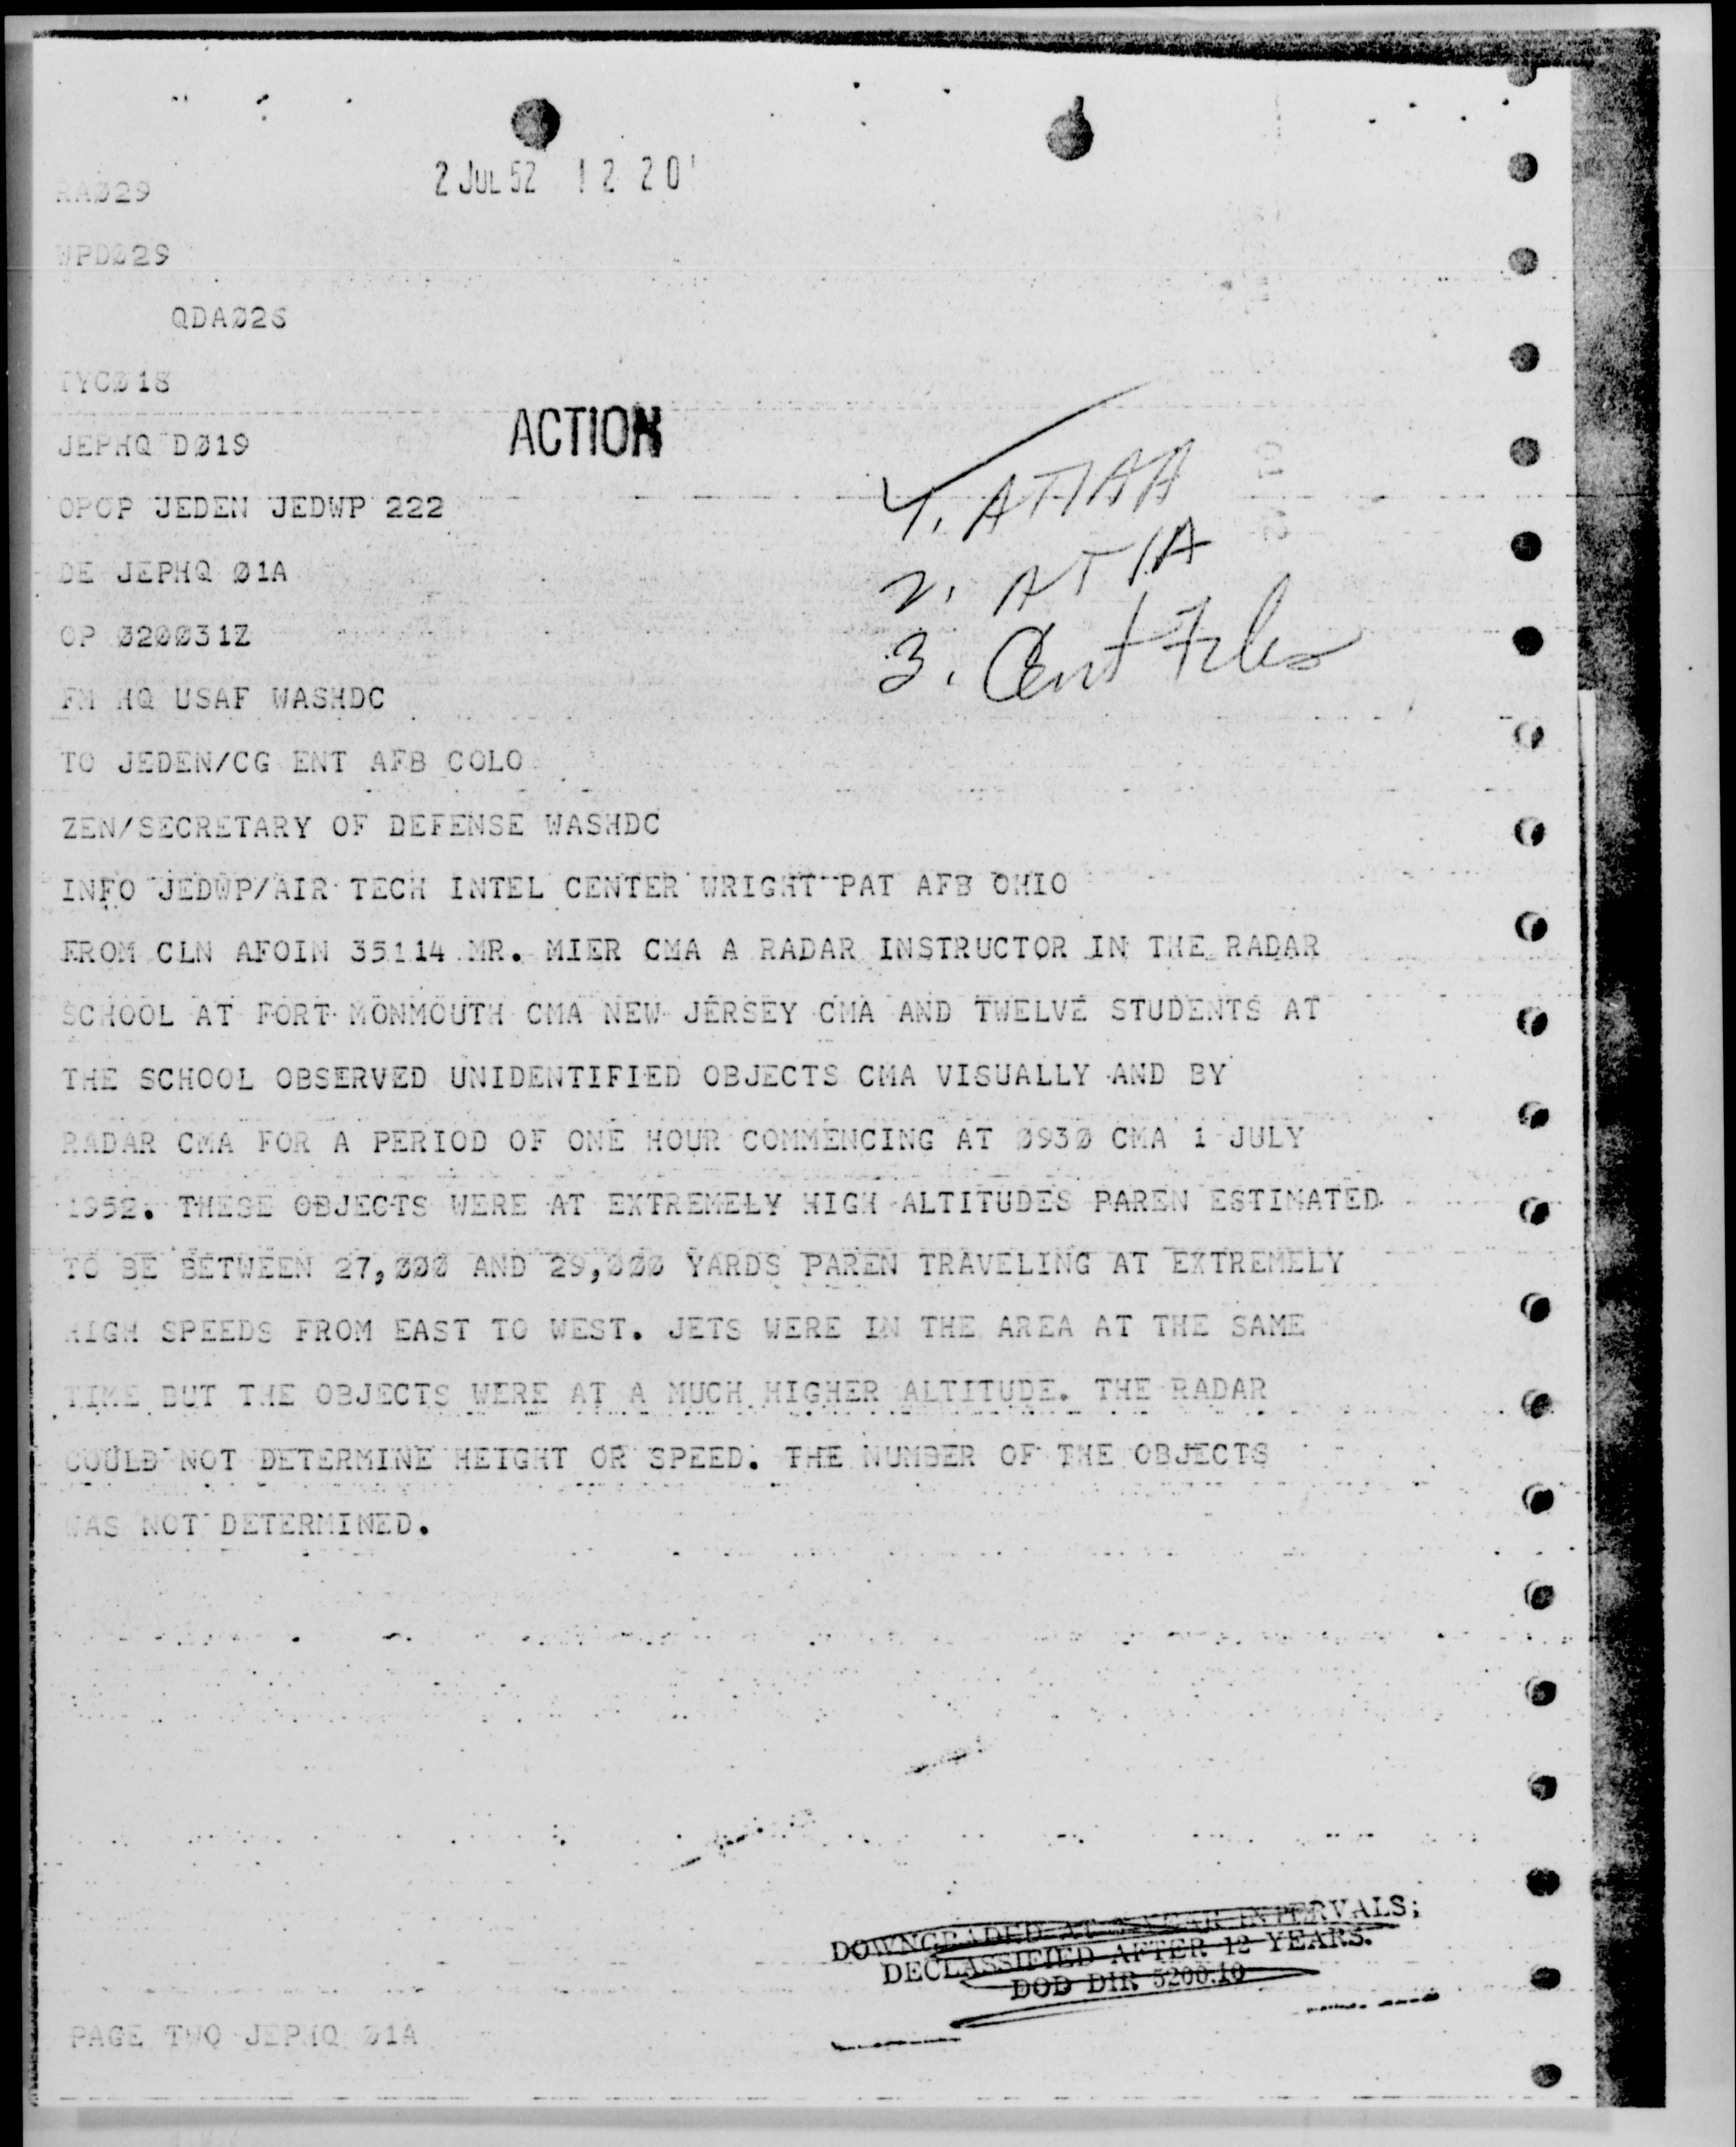 2 JUL 52 12 20
AAØ29
WPDØ29
QDAØ26
TYCØ18
JEPHQ DØ19
OPOP JEDEN JEDWP 222
DE JEPHQ Ø1A
OP Ø2ØØ31Z
FM HQ USAF WASHDC
TO JEDEN/CG ENT AFB COLO
ZEN/SECRETARY OF DEFENSE WASHDC
INFO JEDWP/AIR TECH INTEL CENTER WRIGHT PAT AFB OHIO
FROM CLN AFOIN 35114 MR. MIER CMA A RADAR INSTRUCTOR IN THE RADAR
SCHOOL AT FORT MONMOUTH CMA NEW JERSEY CMA AND TWELVE STUDENTS AT
THE SCHOOL OBSERVED UNIDENTIFIED OBJECTS CMA VISUALLY AND BY
RADAR CMA FOR A PERIOD OF ONE HOUR COMMENCING AT Ø93Ø CMA 1 JULY
1952. THESE OBJECTS WERE AT EXTREMELY HIGH ALTITUDES PAREN ESTIMATED
TO BE BETWEEN 27,ØØØ AND 29,ØØØ YARDS PAREN TRAVELING AT EXTREMELY
HIGH SPEEDS FROM EAST TO WEST. JETS WERE IN THE AREA AT THE SAME
TIME BUT THE OBJECTS WERE AT A MUCH HIGHER ALTITUDE. THE RADAR
COULD NOT DETERMINE HEIGHT OR SPEED. THE NUMBER OF THE OBJECTS
WAS NOT DETERMINED.
ACTION
1. ATIAA
2. ATIA
3. Cent Files
DOWNGRADED AT 3 YEAR INTERVALS;
DECLASSIFIED AFTER 12 YEARS.
DOD DIR 5200.10
PAGE TWO JEPHQ Ø1A